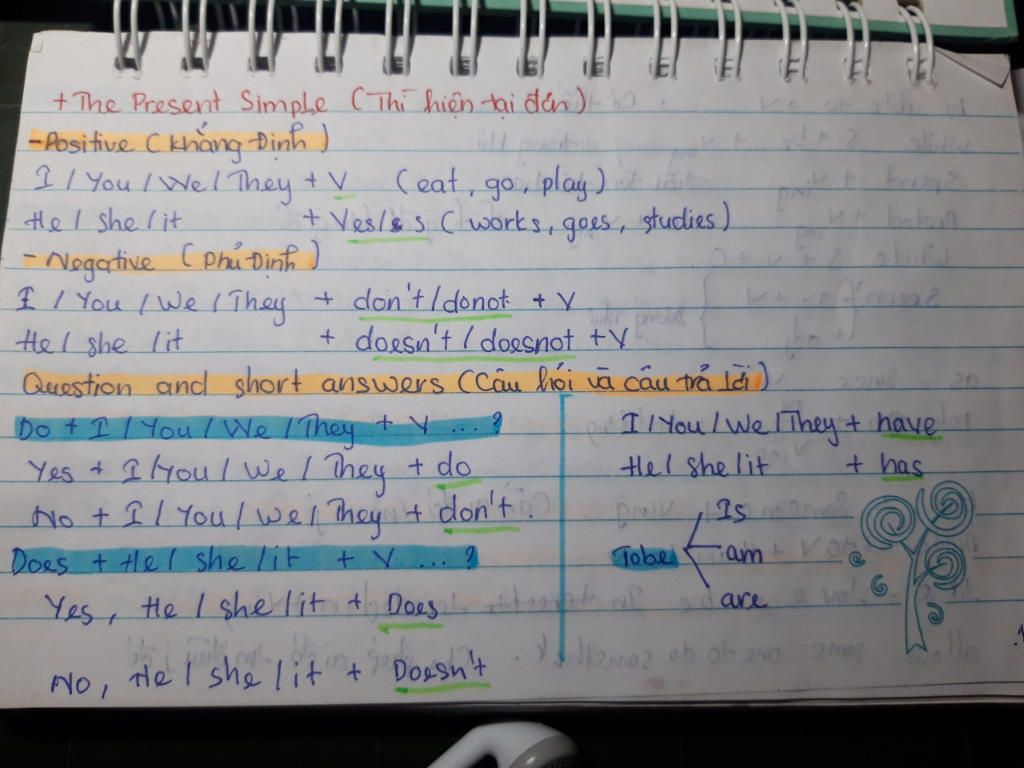 + The Present Simple (Thì hiện tại đơn)
- Positive (Khẳng Định)
I / You / We / They + V (eat, go, play)
He / she / it + Ves/s (works, goes, studies)
- Negative (Phủ Định)
I / You / We / They + don't / donot + V
He / she / it + doesn't / doesnot + V
Question and short answers (Câu hỏi và câu trả lời)
Do + I / You / We / They + V ...?
Yes + I / You / We / They + do
No + I / You / We / They + don't.
Does + He / she / it + V ...?
Yes, He / she / it + Does
No, He / she / it + Doesn't
I / You / We / They + have
He / she / it + has
Is
Tobe am
are